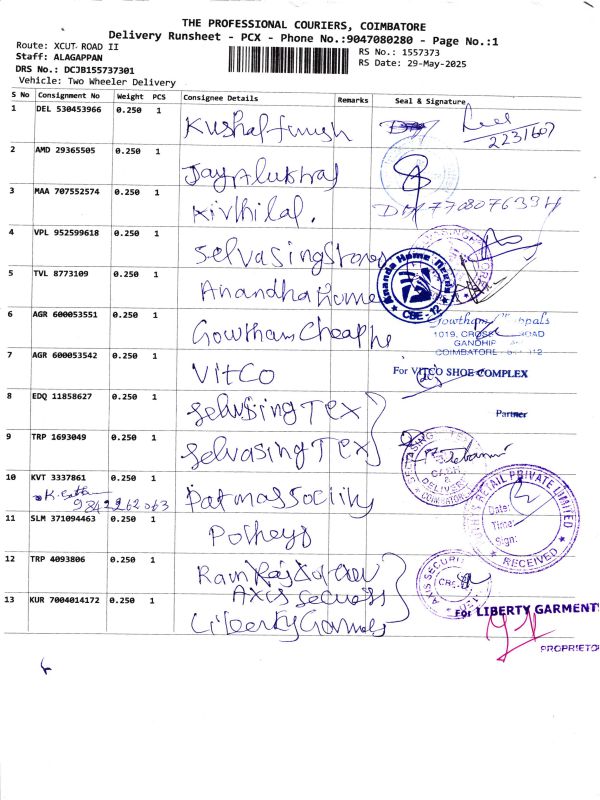 THE PROFESSIONAL COURIERS, COIMBATORE
Delivery Runsheet - PCX - Phone No.:9047080280 - Page No.:1
Route: XCUT ROAD II
RS No.: 1557373
Staff: ALAGAPPAN
RS Date: 29-May-2025
DRS No.: DCJB155737301
Vehicle: Two Wheeler Delivery
S No Consignment No Weight PCS Consignee Details Remarks Seal & Signature
1 DEL 530453966 0.250 1
2231607
2 AMD 29365505 0.250 1
3 MAA 707552574 0.250 1 Kivthilal.
4 VPL 952599618 0.250 1 Selvasing Stores
5 TVL 8773109 0.250 1 Anandha Home
Ananda Home Needs
CBE - 12
6 AGR 600053551 0.250 1 Gowtham Cheaphe
Gowtham
1019, CROSS ROAD
GANDHIP
COIMBATORE
7 AGR 600053542 0.250 1 VitCo
For VITCO SHOE COMPLEX
8 EDQ 11858627 0.250 1 Selvasing TEX
Partner
9 TRP 1693049 0.250 1 Selvasing TEX
10 KVT 3337861 0.250 1
9842262063
11 SLM 371094463 0.250 1 Potheys
RETAIL PRIVATE LIMITED
Date:
Time:
Sign:
RECEIVED
12 TRP 4093806 0.250 1
Axis
AXIS SECURI
13 KUR 7004014172 0.250 1 Liberty
For LIBERTY GARMENTS
PROPRIETO